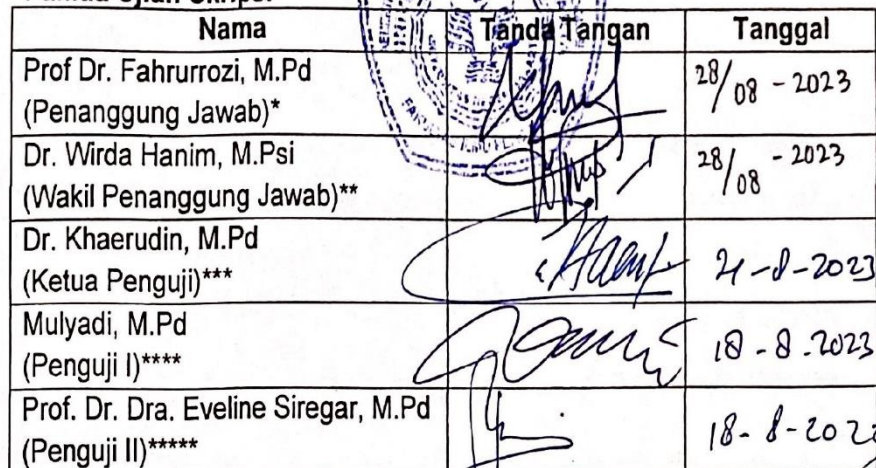 Nama Tanda Tangan Tanggal
Prof Dr. Fahrurrozi, M.Pd
(Penanggung Jawab)*
28/08 - 2023
Dr. Wirda Hanim, M.Psi
(Wakil Penanggung Jawab)**
28/08 - 2023
Dr. Khaerudin, M.Pd
(Ketua Penguji)***
21-8-2023
Mulyadi, M.Pd
(Penguji I)****
18-8-2023
Prof. Dr. Dra. Eveline Siregar, M.Pd
(Penguji II)*****
18-8-202